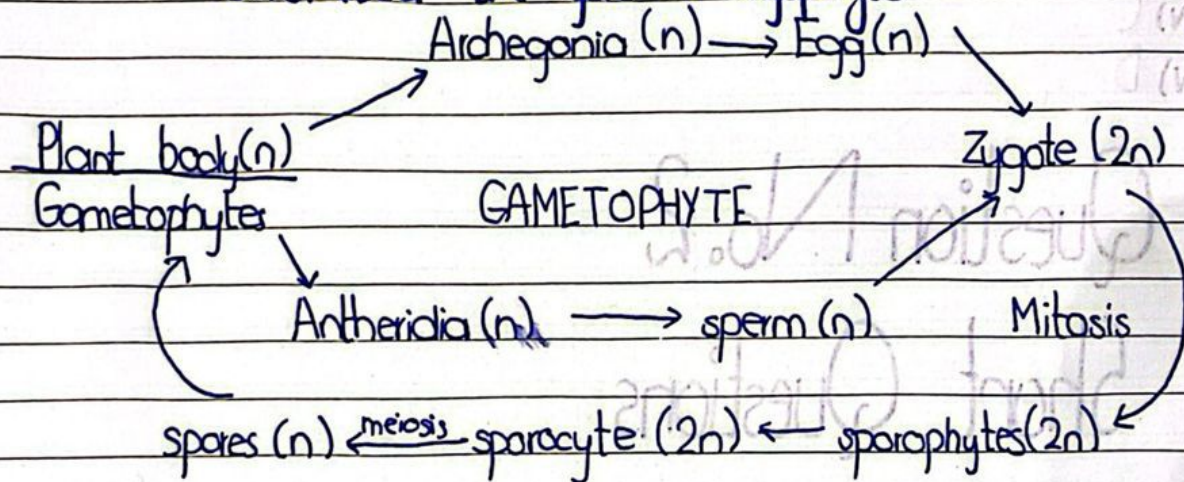 Archegonia (n) → Egg (n)
Plant body(n)
Zygote (2n)
Gametophytes
GAMETOPHYTE
Antheridia (n) → sperm (n)
Mitosis
spores (n) ← meiosis sporocyte (2n) ← sporophytes(2n)